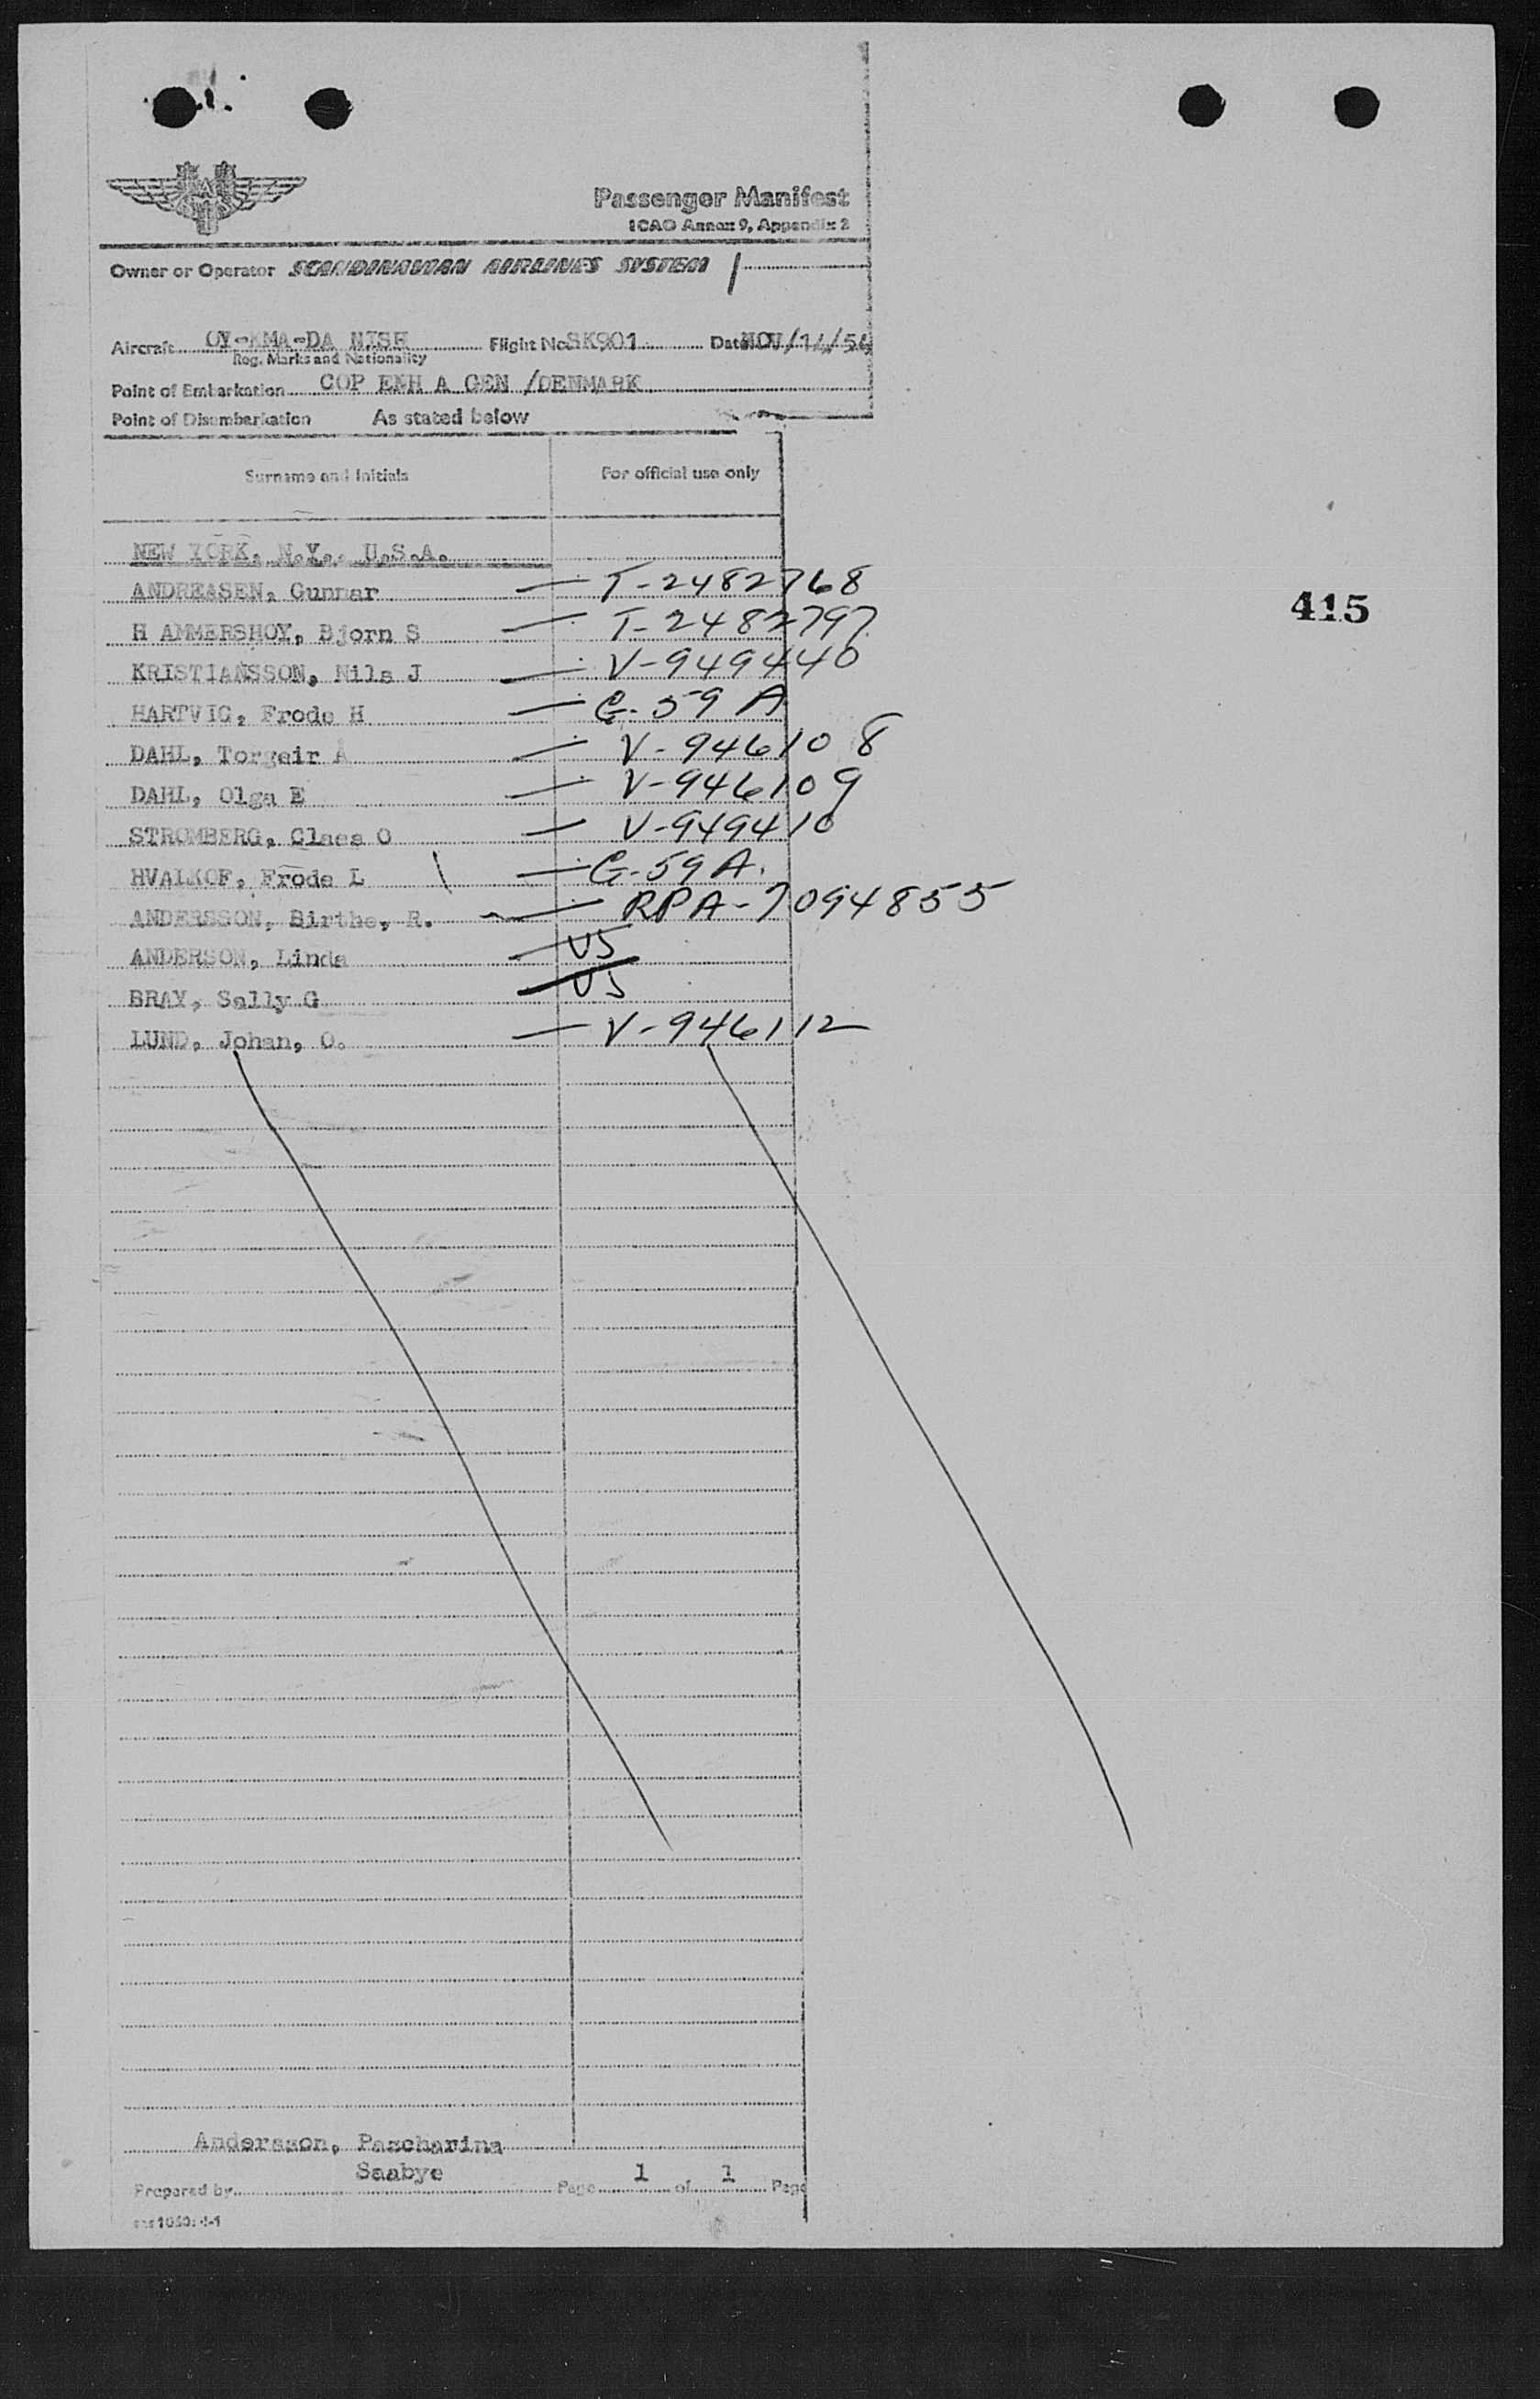 Passenger Manifest
ICAO Annex 9, Appendix 2
Owner or Operator SCANDINAVIAN AIRLINES SYSTEM
Aircraft OY-KMA-DA NISH Flight No SK901 Date NOV/14/54
Reg. Marks and Nationality
Point of Embarkation COP ENH A GEN /DENMARK
Point of Disembarkation As stated below
Surname and Initials For official use only
NEW YORK, N.Y., U.S.A.
ANDREASEN, Gunnar — T-2482768
415
H AMMERSHOY, Bjorn S — T-2482797
KRISTIANSSON, Nils J — V-949440
HARTVIG, Frode H — G-59 A
DAHL, Torgeir A — V-946108
DAHL, Olga E — V-946109
STROMBERG, Claes O — V-949410
HVALKOF, Frode L — G-59 A.
ANDERSSON, Birthe, R. — RPA-7094855
ANDERSON, Linda US
BRAY, Sally G US
LUND, Johan, O. — V-946112
Andersson, Pascharina
Saabye
Prepared by Page 1 of 1 Page